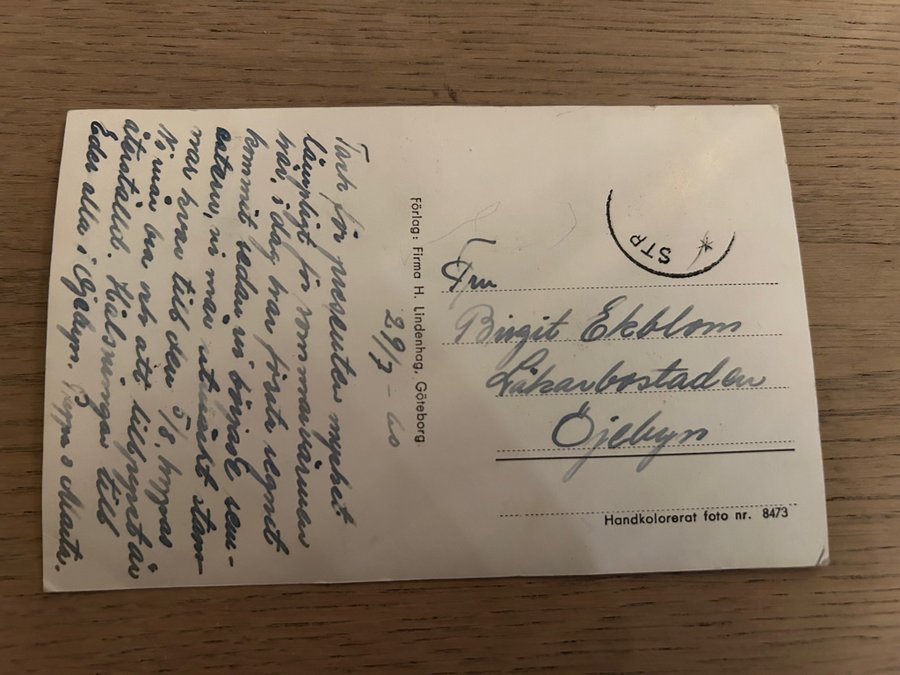 29/7 - 60
Tack för presenten mycket
lämpligt för sommarvärmen
här, i dag har första regnet
kommit sedan vi började sem-
estern, vi mår utmärkt stan-
nar kvar till den 5/8, hoppas
Ni mår bra och att är
återställd. Hälsningar till
Eder alla i Öjebyn. o Marta.
Förlag: Firma H. Lindenhag, Göteborg
STR
Fru
Birgit Ekblom
Läkarbostaden
Öjebyn
Handkolorerat foto nr. 8473